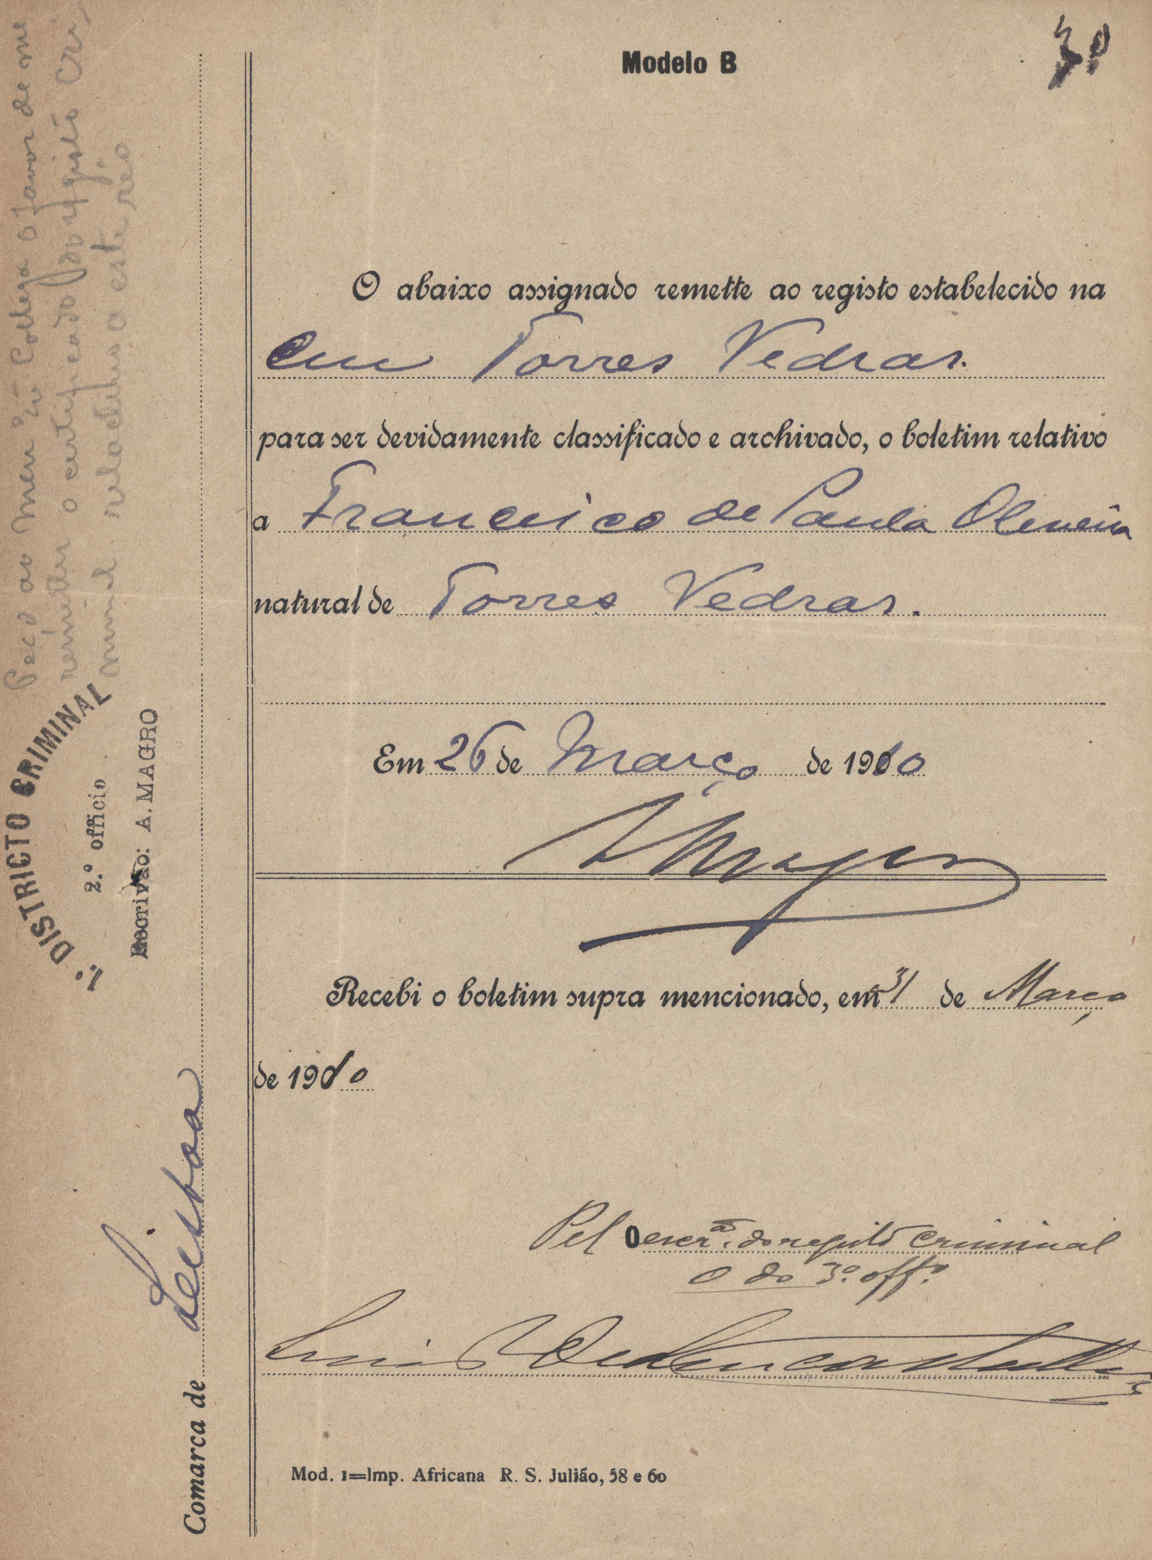 Modelo B
30
O abaixo assignado remette ao registo estabelecido na
em Torres Vedras.
para ser devidamente classificado e archivado, o boletim relativo
a Francisco de Paula Oliveira
natural de Torres Vedras.
Em 26 de Março de 1910
AMagro
Recebi o boletim supra mencionado, em 31 de Março
de 1910
Pel O escram. do registo criminal
O do 3º. offº.
Luis de Lencastre
Mod. 1=Imp. Africana R. S. Julião, 58 e 60
Peço ao meu Exº Collega o favor de me
remetter o certificado do registo cri
minal relativo a este réo
1.º DISTRICTO CRIMINAL
2.º officio
Escrivão: A. MAGRO
Comarca de Lisboa